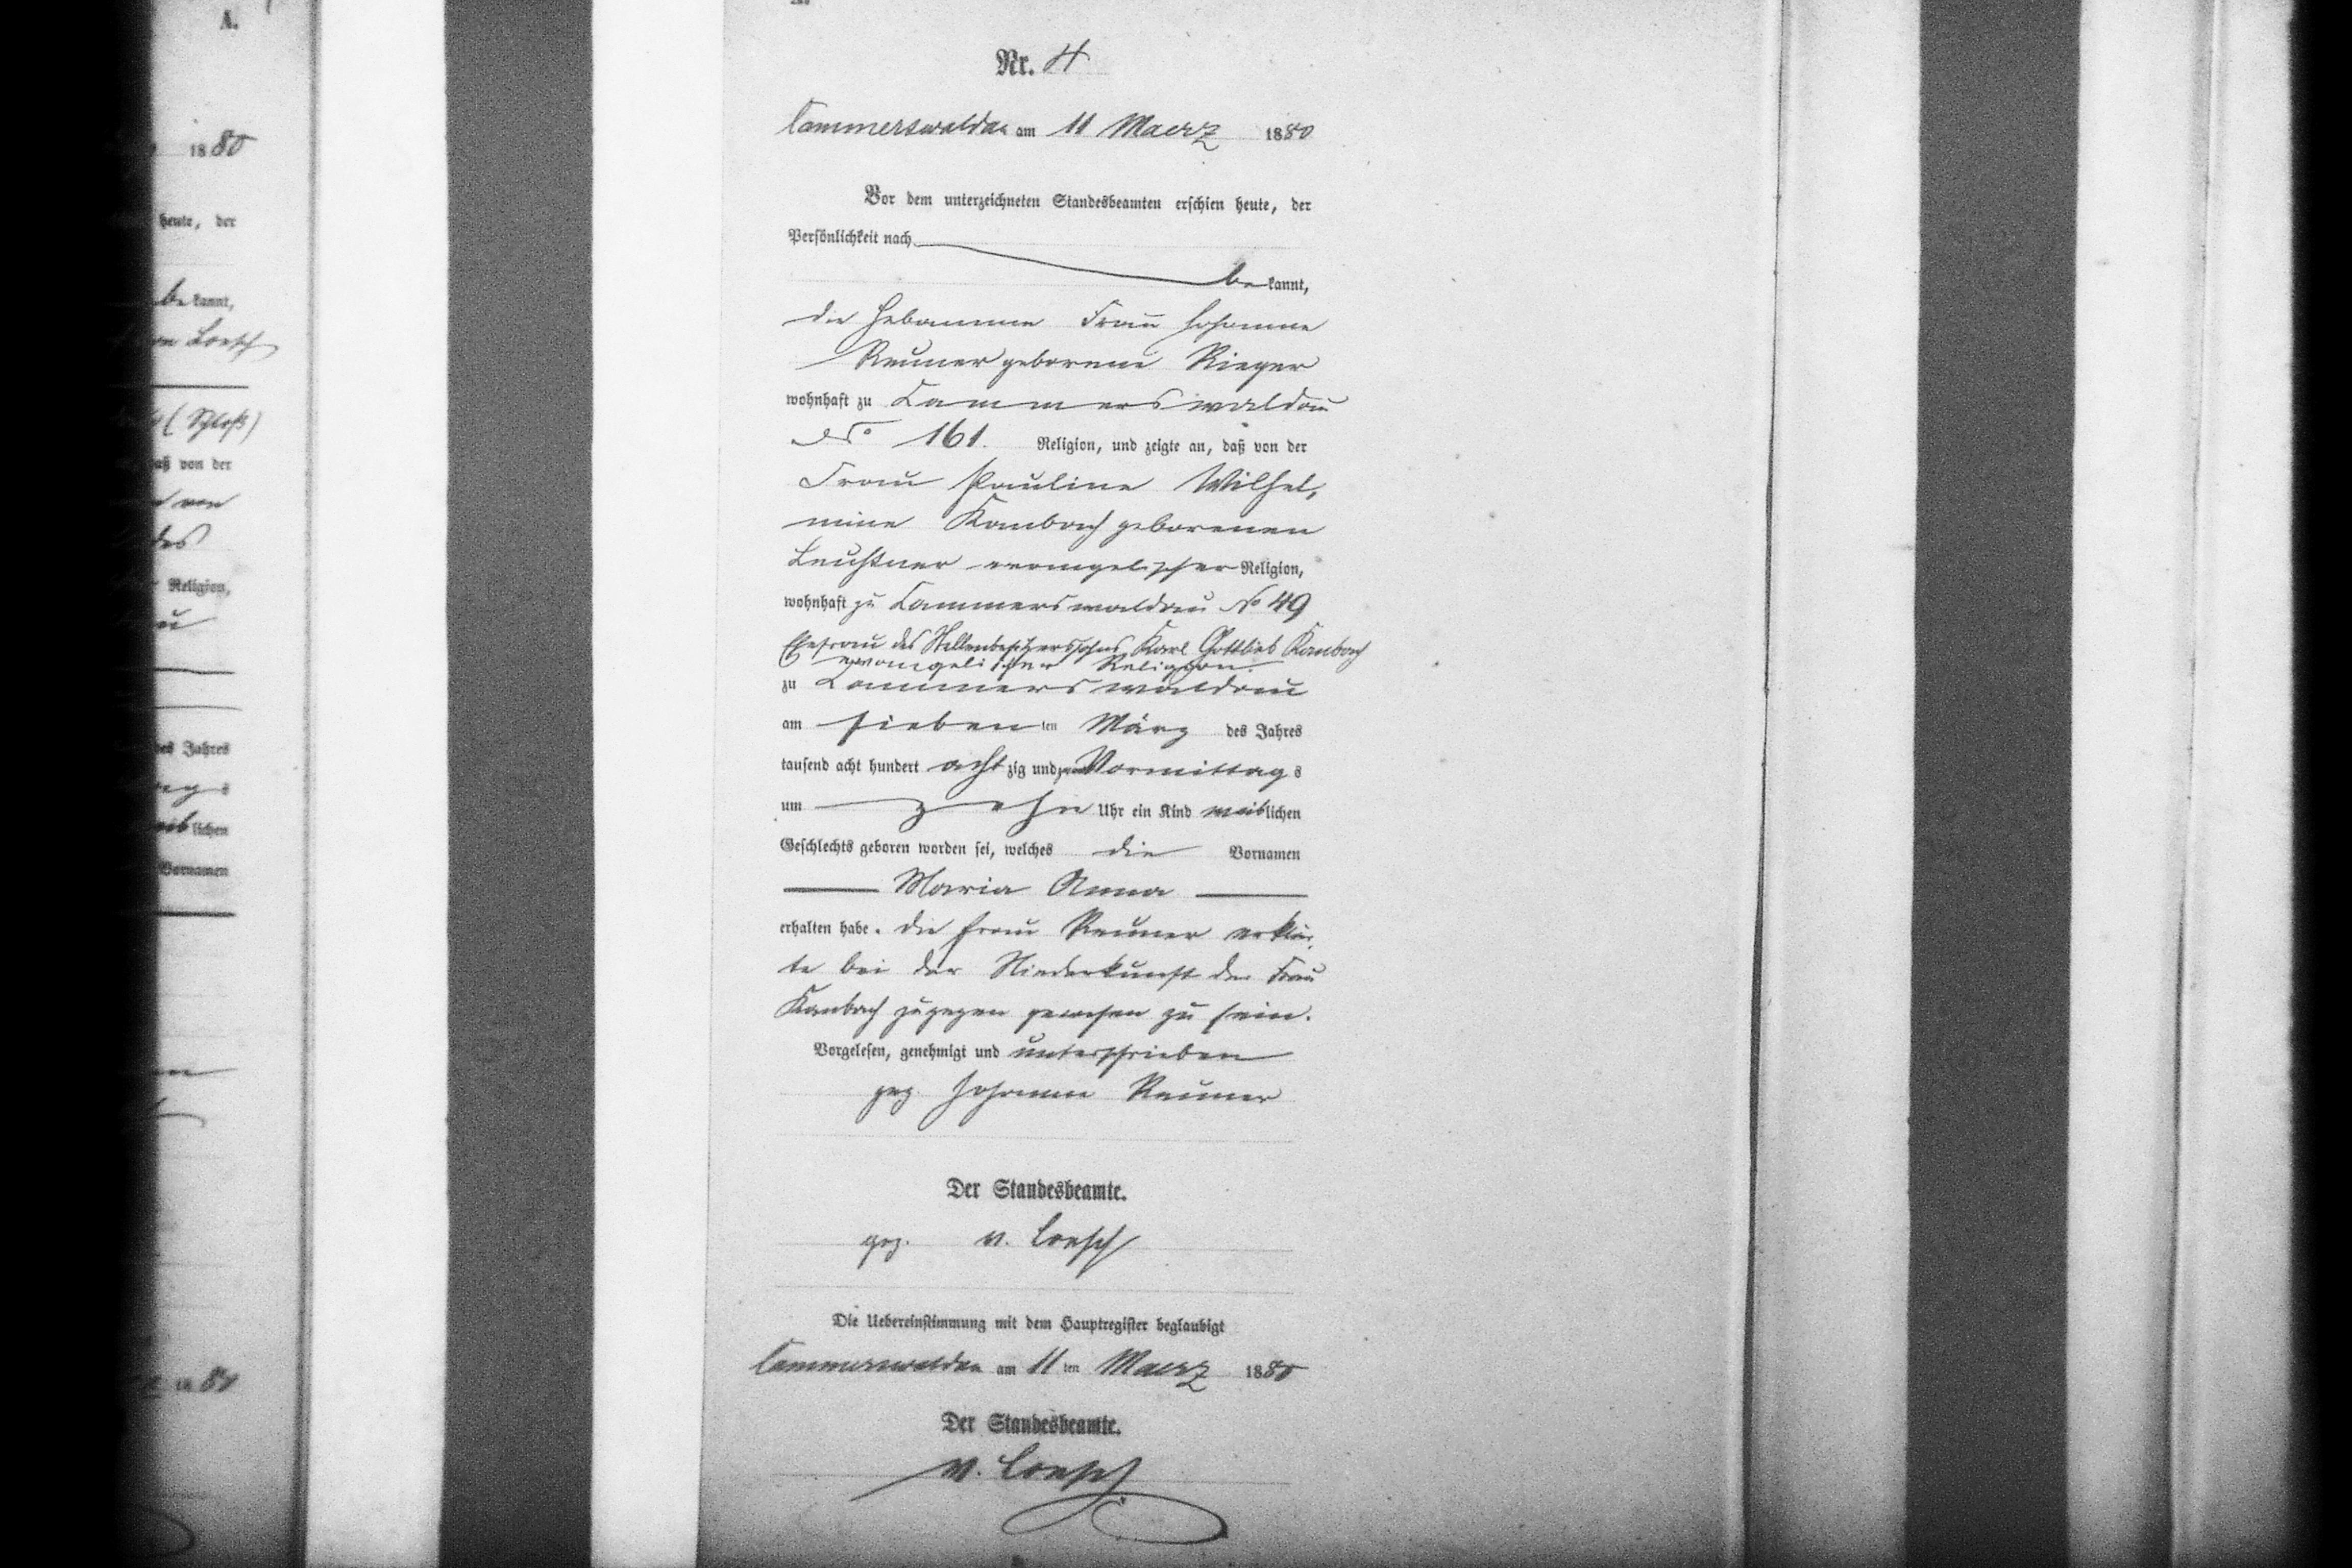 A.
1880
heute, der
be kannt,
von Loesch
(Schloß)
daß von der
des
Religion,
des Jahres
lichen
Vornamen
1880
Nr. 4
Cammerswaldau am 11 Maerz 1880
Vor dem unterzeichneten Standesbeamten erschien heute, der
Persönlichkeit nach
be kannt,
die Hebamme Frau Johanne
Reuner geborene Rieger
wohnhaft zu Cammerswaldau
No 161. Religion, und zeigte an, daß von der
Frau Pauline Wilhel,
mine Kambach geborenen
Leuchtner evangelischer Religion,
wohnhaft zu Cammerswaldau No 49
Ehefrau des Stellenbesitzerssohns Karl Gottlieb Kambach
evangelischer Religion.
zu Cammerswaldau
am sieben ten März des Jahres
tausend acht hundert acht zig und Vormittag s
um zehn Uhr ein Kind weiblichen
Geschlechts geboren worden sei, welches die Vornamen
Maria Anna
erhalten habe. Die Frau Reuner erklär,
te bei der Niederkunft der Frau
Kambach zugegen gewesen zu sein.
Vorgelesen, genehmigt und unterschrieben
gez. Johanne Reuner
Der Standesbeamte.
gez. v. Loesch
Die Uebereinstimmung mit dem Hauptregister beglaubigt
Cammerswaldau am 11 ten Maerz 1880
Der Standesbeamte.
v. Loesch